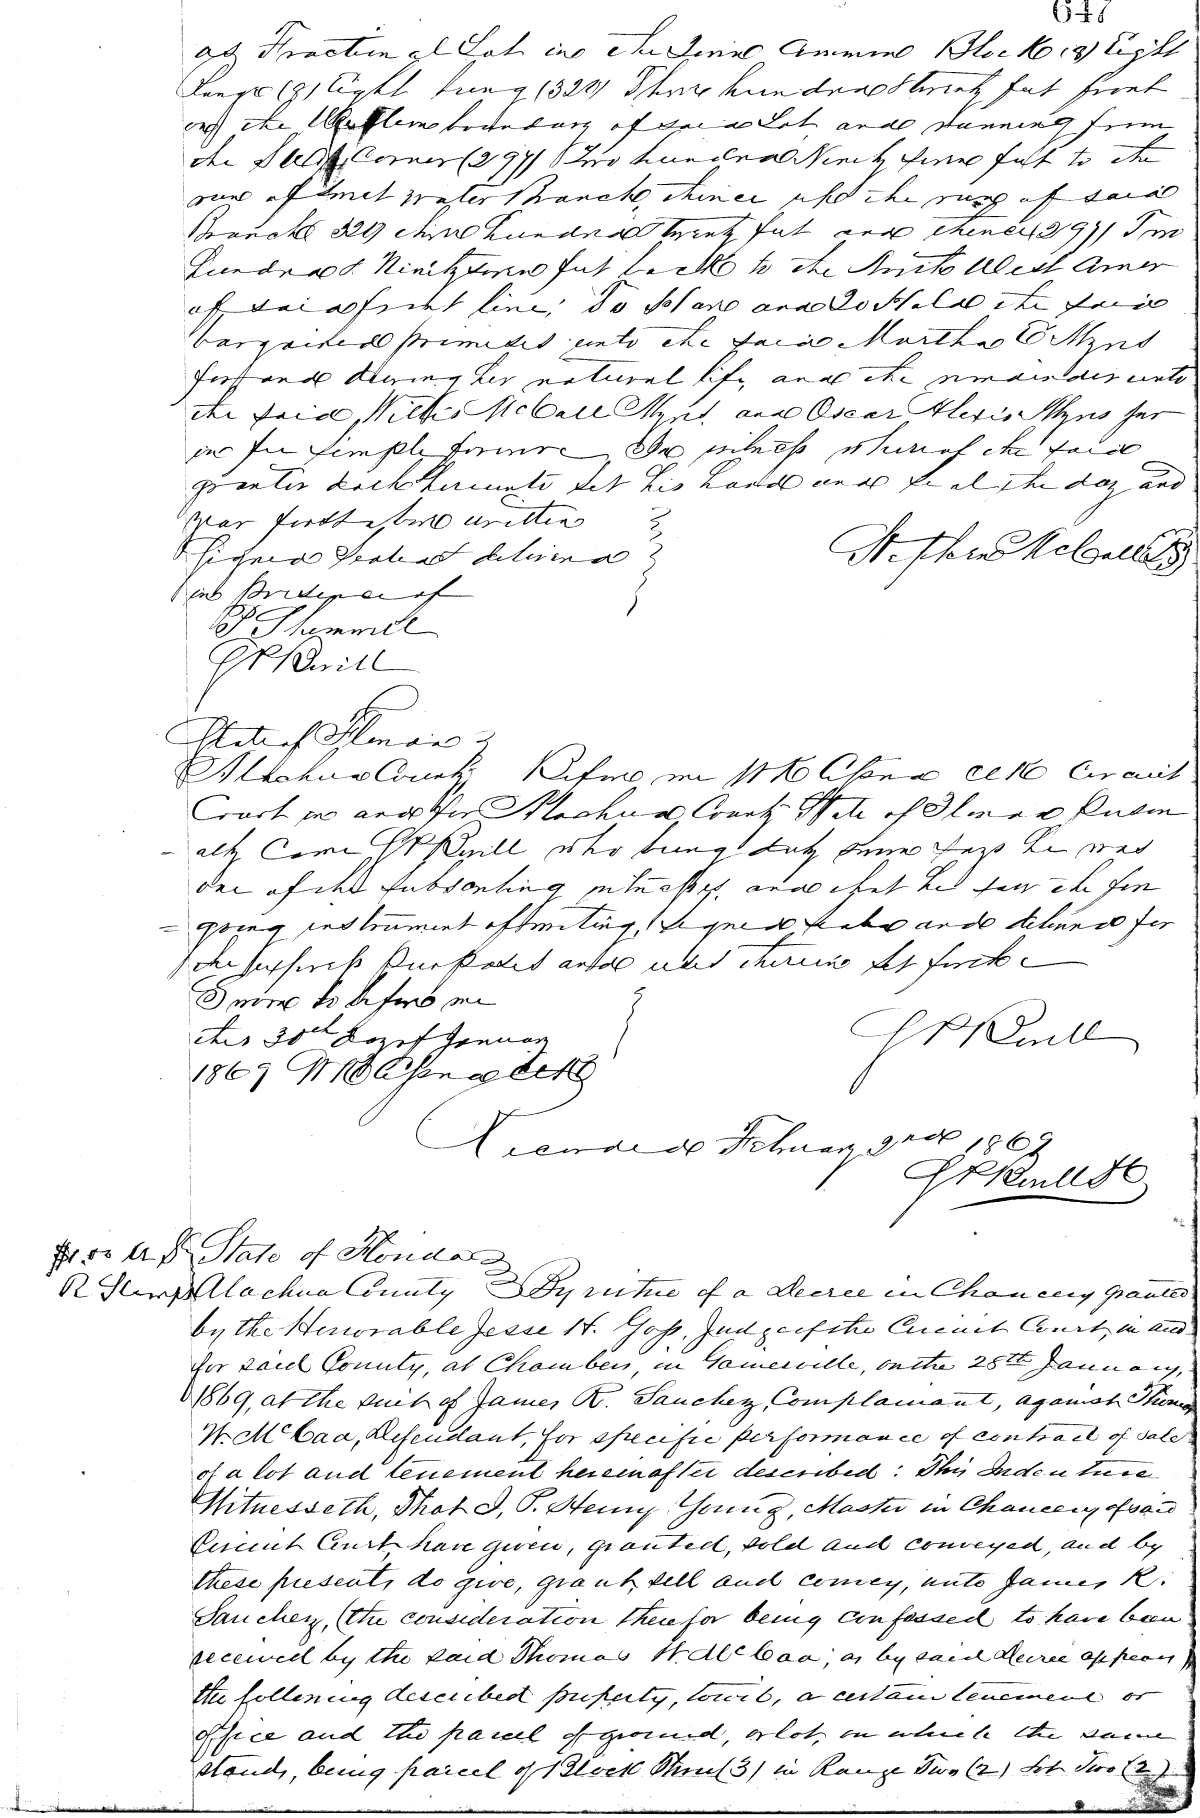 647
as Fractional Lot in the Town Block (8) Eight
Range (8) Eight being (320) Three hundred & twenty feet front
on the Western boundary of said Lot and running from
the S West Corner (297) Two hundred Ninety seven feet to the
run of Sweet water Branch, thence up the run of said
Branch 320 three hundred & twenty feet and thence (297) Two
hundred & Ninety seven feet back to the North West Corner
of said front line; To Have and To Hold the said
bargained premises unto the said Martha E Myrs
for and during her natural life, and the remainder unto
the said Willis McCall Myrs. and Oscar Alexis Myrs
in fee simple forever. In witness whereof the said
grantor doth hereunto set his hand and seal the day and
year first above written
Signed Sealed & delivered
in Presence of
Stephen McCall
State of Florida
Alachua County Before me Clk Circuit
Court in and for Alachua County State of Florida Person
ally Came who being duly sworn says he was
one of the subscribing witnesses, and that he saw the fore
going instrument of writing, signed sealed and delivered for
the express Purposes and uses therein set forth
Sworn to before me
this 30th day of January
1869
Recorded February 2nd 1869
State of Florida
R Stamp Alachua County By virtue of a Decree in Chancery granted
by the Honorable Jesse H. Goss, Judge of the Circuit Court, in and
for said County, at Chambers, in Gainesville, on the 28th January,
1869, at the suit of James R. Sanchez, Complainant, against Thomas
W. McCaa, Defendant, for specific performance of contract of sale
of a lot and tenement hereinafter described: This Indenture
Witnesseth, That I, P. Henry Young, Master in Chancery of said
Circuit Court have given, granted, sold and conveyed, and by
these presents do give, grant, sell and convey, unto James R.
Sanchez, (the consideration therefor being confessed to have been
received by the said Thomas W. McCaa, as by said Decree appears)
the following described property, towit, a certain tenement or
office and the parcel of ground, or lot, on which the same
stands, being parcel of Block Three (3) in Range Two (2) Lot Two (2)